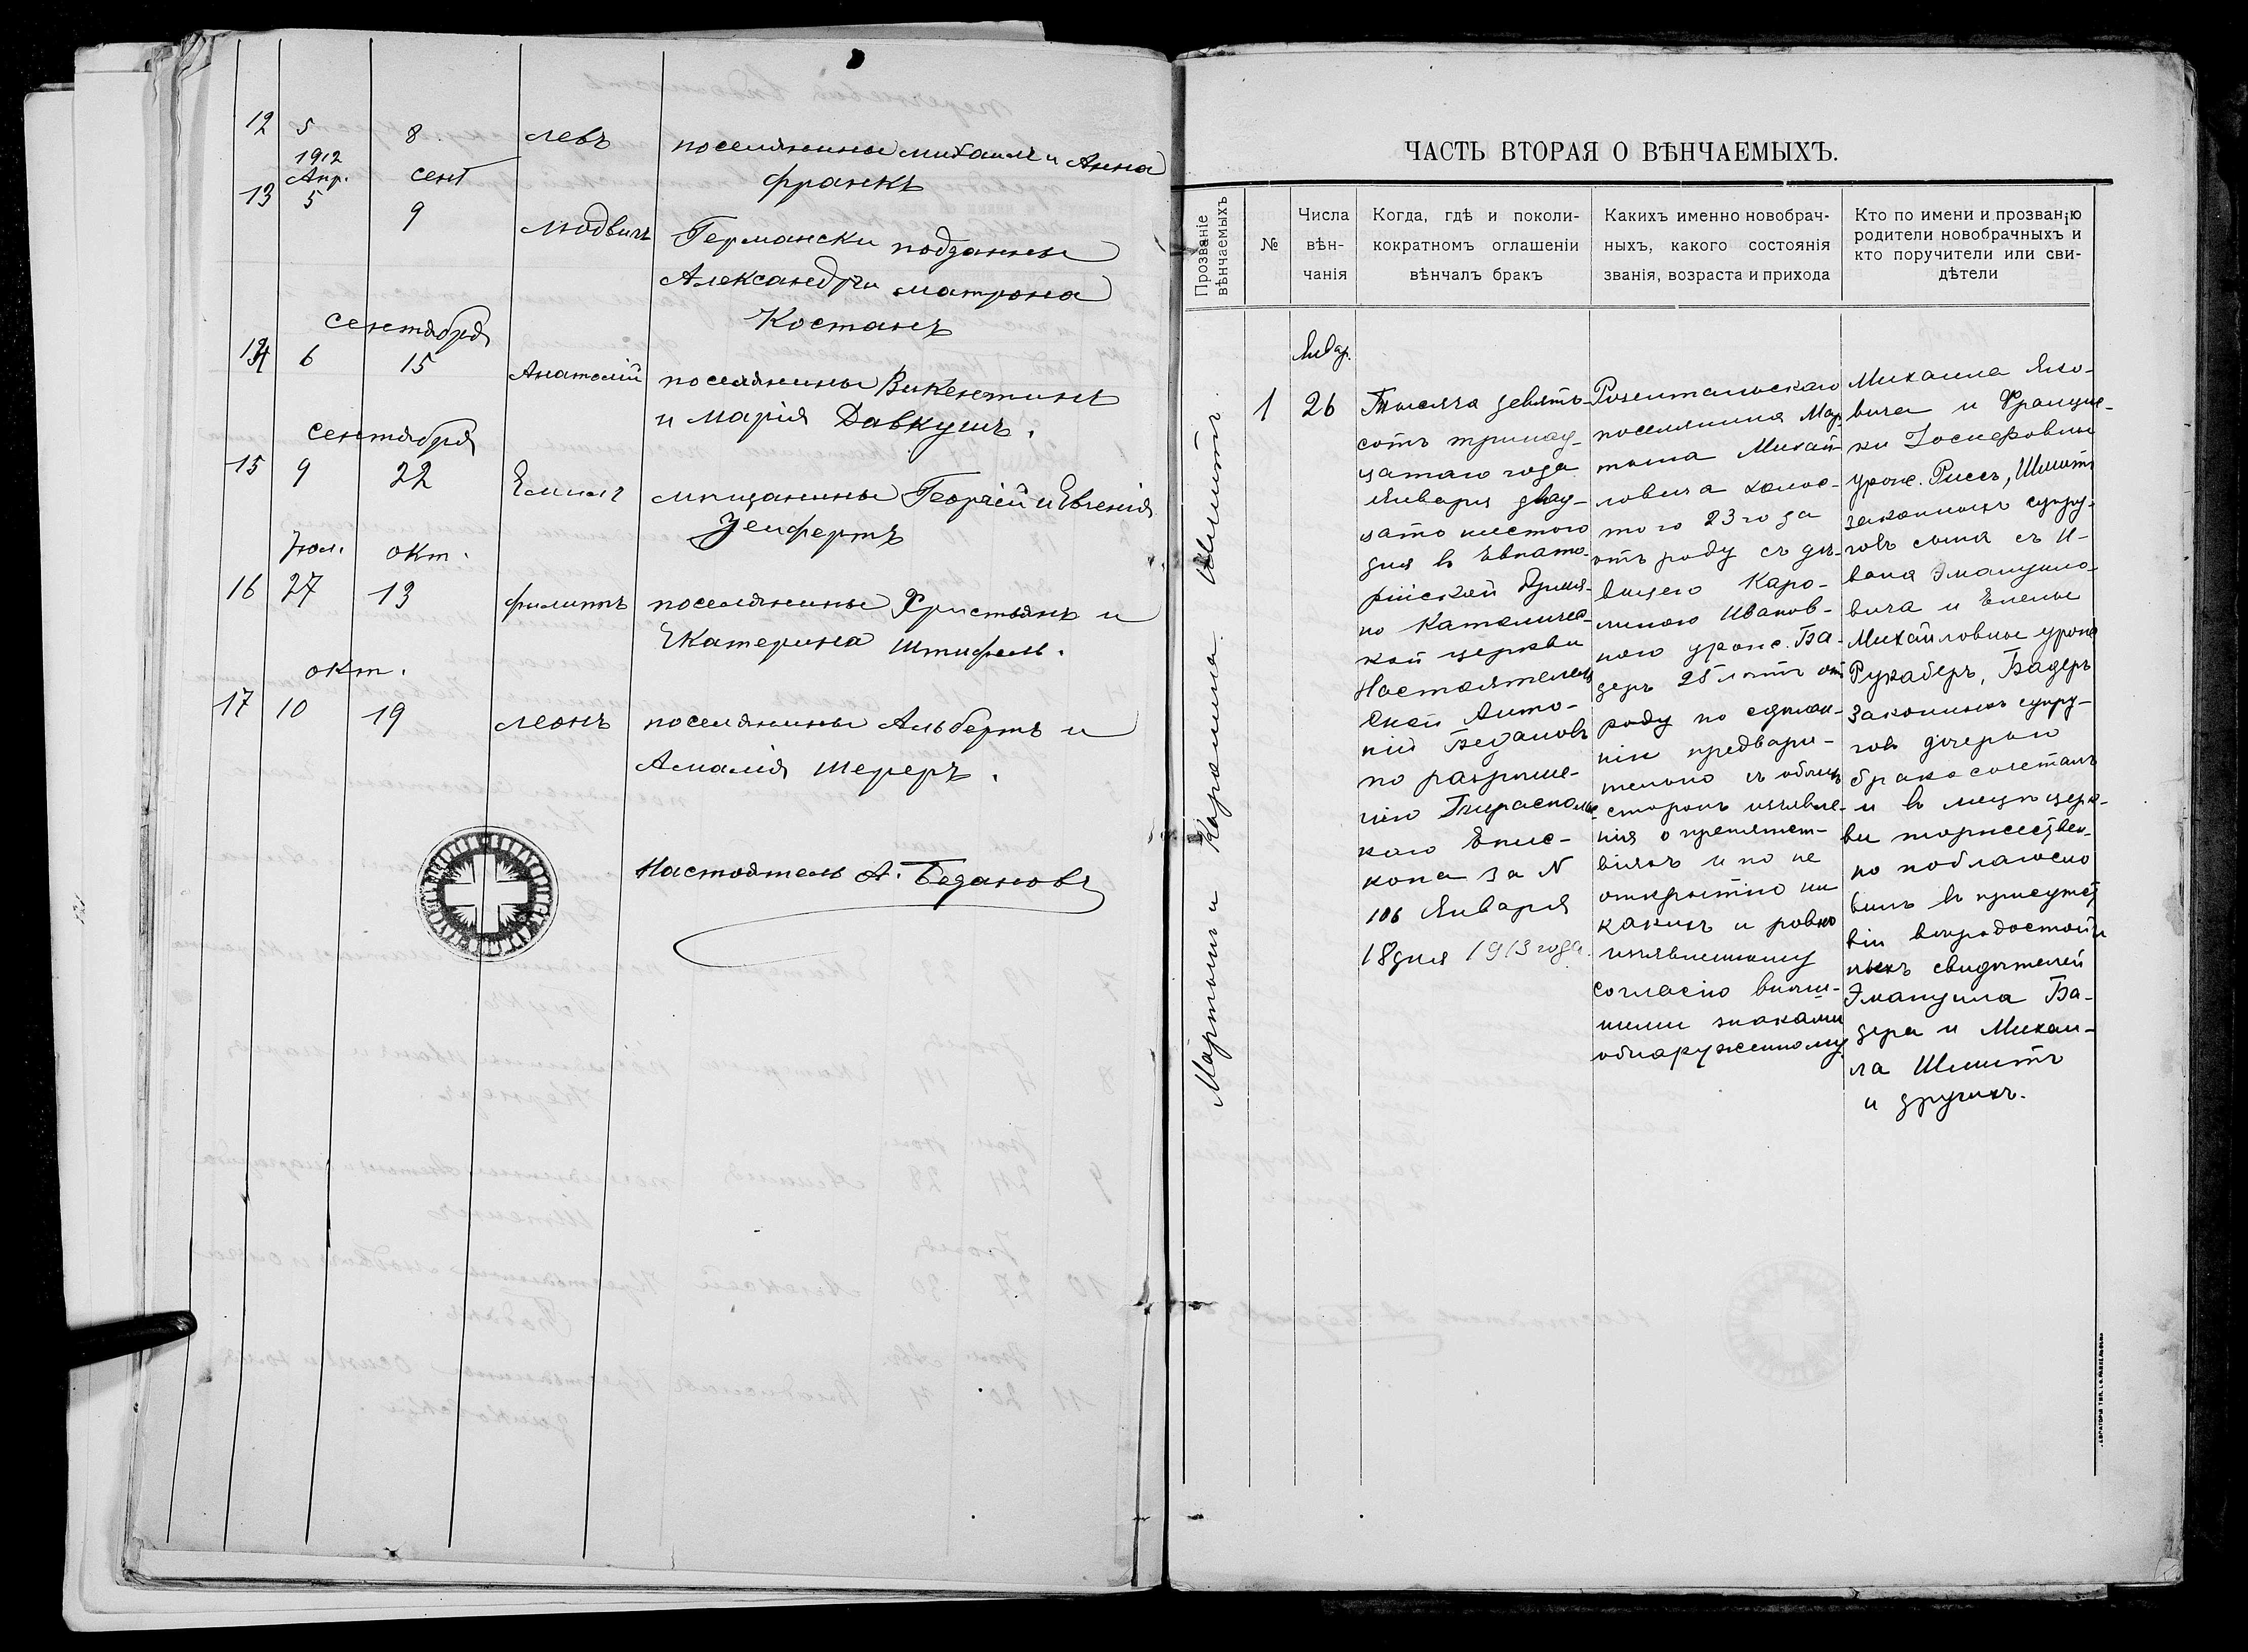 12 5 8 левъ поселянины михаилъ и Анна
франкъ
1912
Апр. сент
13 5 9 людвигъ Германски подданны
Александръ и матрона
Костанъ
сентября
14 6 15 Анатолій поселянины Викентинъ
и марія Давкушъ.
сентября
15 9 22 Емилъ мѣщанины Георгій и Евгенія
Зейфертъ
Іюл. окт.
16 27 13 филиппъ поселянины Христьянъ и
Екатерина Штифель.
окт.
17 10 19 леонъ поселянины Альбертъ и
Амалія Шерреръ.
Настоятель А. Бедановъ
ЧАСТЬ ВТОРАЯ О ВѢНЧАЕМЫХЪ.
Прозваніе
вѣнчаемыхъ
№
Числа
вѣн-
чанія
Когда, гдѣ и поколи-
кократномъ оглашеніи
вѣнчалъ бракъ
Какихъ именно новобрач-
ныхъ, какого состоянія
званія, возраста и прихода
Кто по имени и прозванію
родители новобрачныхъ и
кто поручители или сви-
дѣтели
Мартинъ и Каролина Шмитъ.
1
Январ.
26
Тысяча девять-
сотъ тринад-
цатаго года
Января двад-
цато шестого
дня въ Евпато-
рійской Армя-
но Католичес-
кой церкви
Настоятелемъ
Антo-
ній Бедановъ
по разрѣше-
нію Тирасполь-
каго Епис-
копа за N
106 Января
18 дня 1913 года.
Розентальскаго
поселянина Мар-
тина Михай-
ловича холос-
того 23 года
отъ роду съ дѣ-
вицею Каро-
линою Иванов-
ною урожд. Ба-
деръ 25 лѣтъ отъ
роду по сдѣлан-
ніи предвари-
тельно съ обѣихъ
сторонъ изъявле-
нія о препятст-
віяхъ и по не
открытію ни
какихъ и ровно
изъявленному
согласію внѣш-
ними знаками
обнаруженному
Михаила Яко-
вича и Францис-
ки Іосифовны
урож. Риссъ, Шмитъ
законныхъ супру-
говъ сына съ И-
вана Эмануило-
вича и Елены
Михайловны урож
Рукаберъ, Бадеръ
Законныхъ супру-
говъ дочерью
брако сочеталъ
и въ лицѣ церк-
ви торжествен-
но поблагосло
вилъ въ присутст
віи вѣродостой
ныхъ свидѣтелей
Эмануила Ба-
дера и Михаи-
ла Шмитъ
и другихъ.